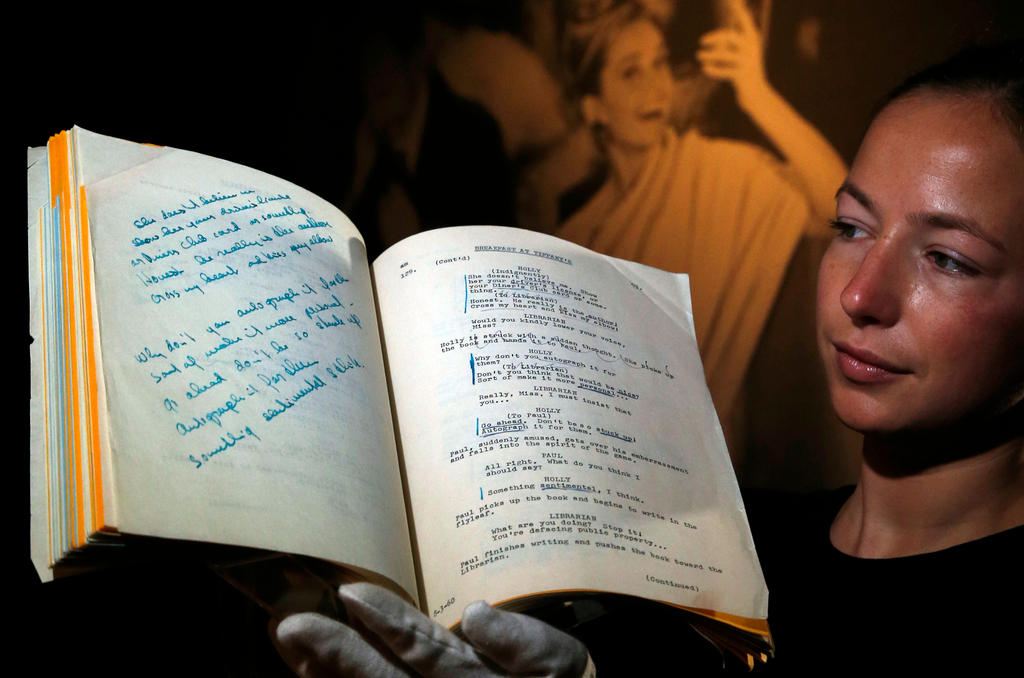 She doesn't believe me
show her your driver's license
or Diners Club card or something.
Honest. He really is the author
cross my heart, and kiss my elbow
Why don't you autograph it
Sort of make it more personal -
Go ahead, don't be so stuck up
autograph it
Something sentimental I think
BREAKFAST AT TIFFANY'S
129. (Cont'd)
HOLLY
(Indignantly)
She doesn't believe me. Show
her your driver's license or
your Diner's Club card or some-
thing.
(To Librarian)
Honest. He really is the author;
Cross my heart and kiss my elbow;
LIBRARIAN
Would you kindly lower your voice,
Miss?
Holly is struck with a sudden thought. She picks up
the book and hands it to Paul.
HOLLY
Why don't you autograph it for
them?
(To Librarian)
Don't you think that would be nice?
Sort of make it more personal...
LIBRARIAN
Really, Miss, I must insist that
you...
HOLLY
(To Paul)
Go ahead. Don't be so stuck up;
Autograph it for them.
Paul, suddenly amused, gets over his embarrassment
and falls into the spirit of the game.
PAUL
All right. What do you think I
should say?
HOLLY
Something sentimental, I think.
Paul picks up the book and begins to write in the
flyleaf.
LIBRARIAN
What are you doing? Stop it;
You're defacing public property...
Paul finishes writing and pushes the book toward the
Librarian.
(Continued)
8-3-60